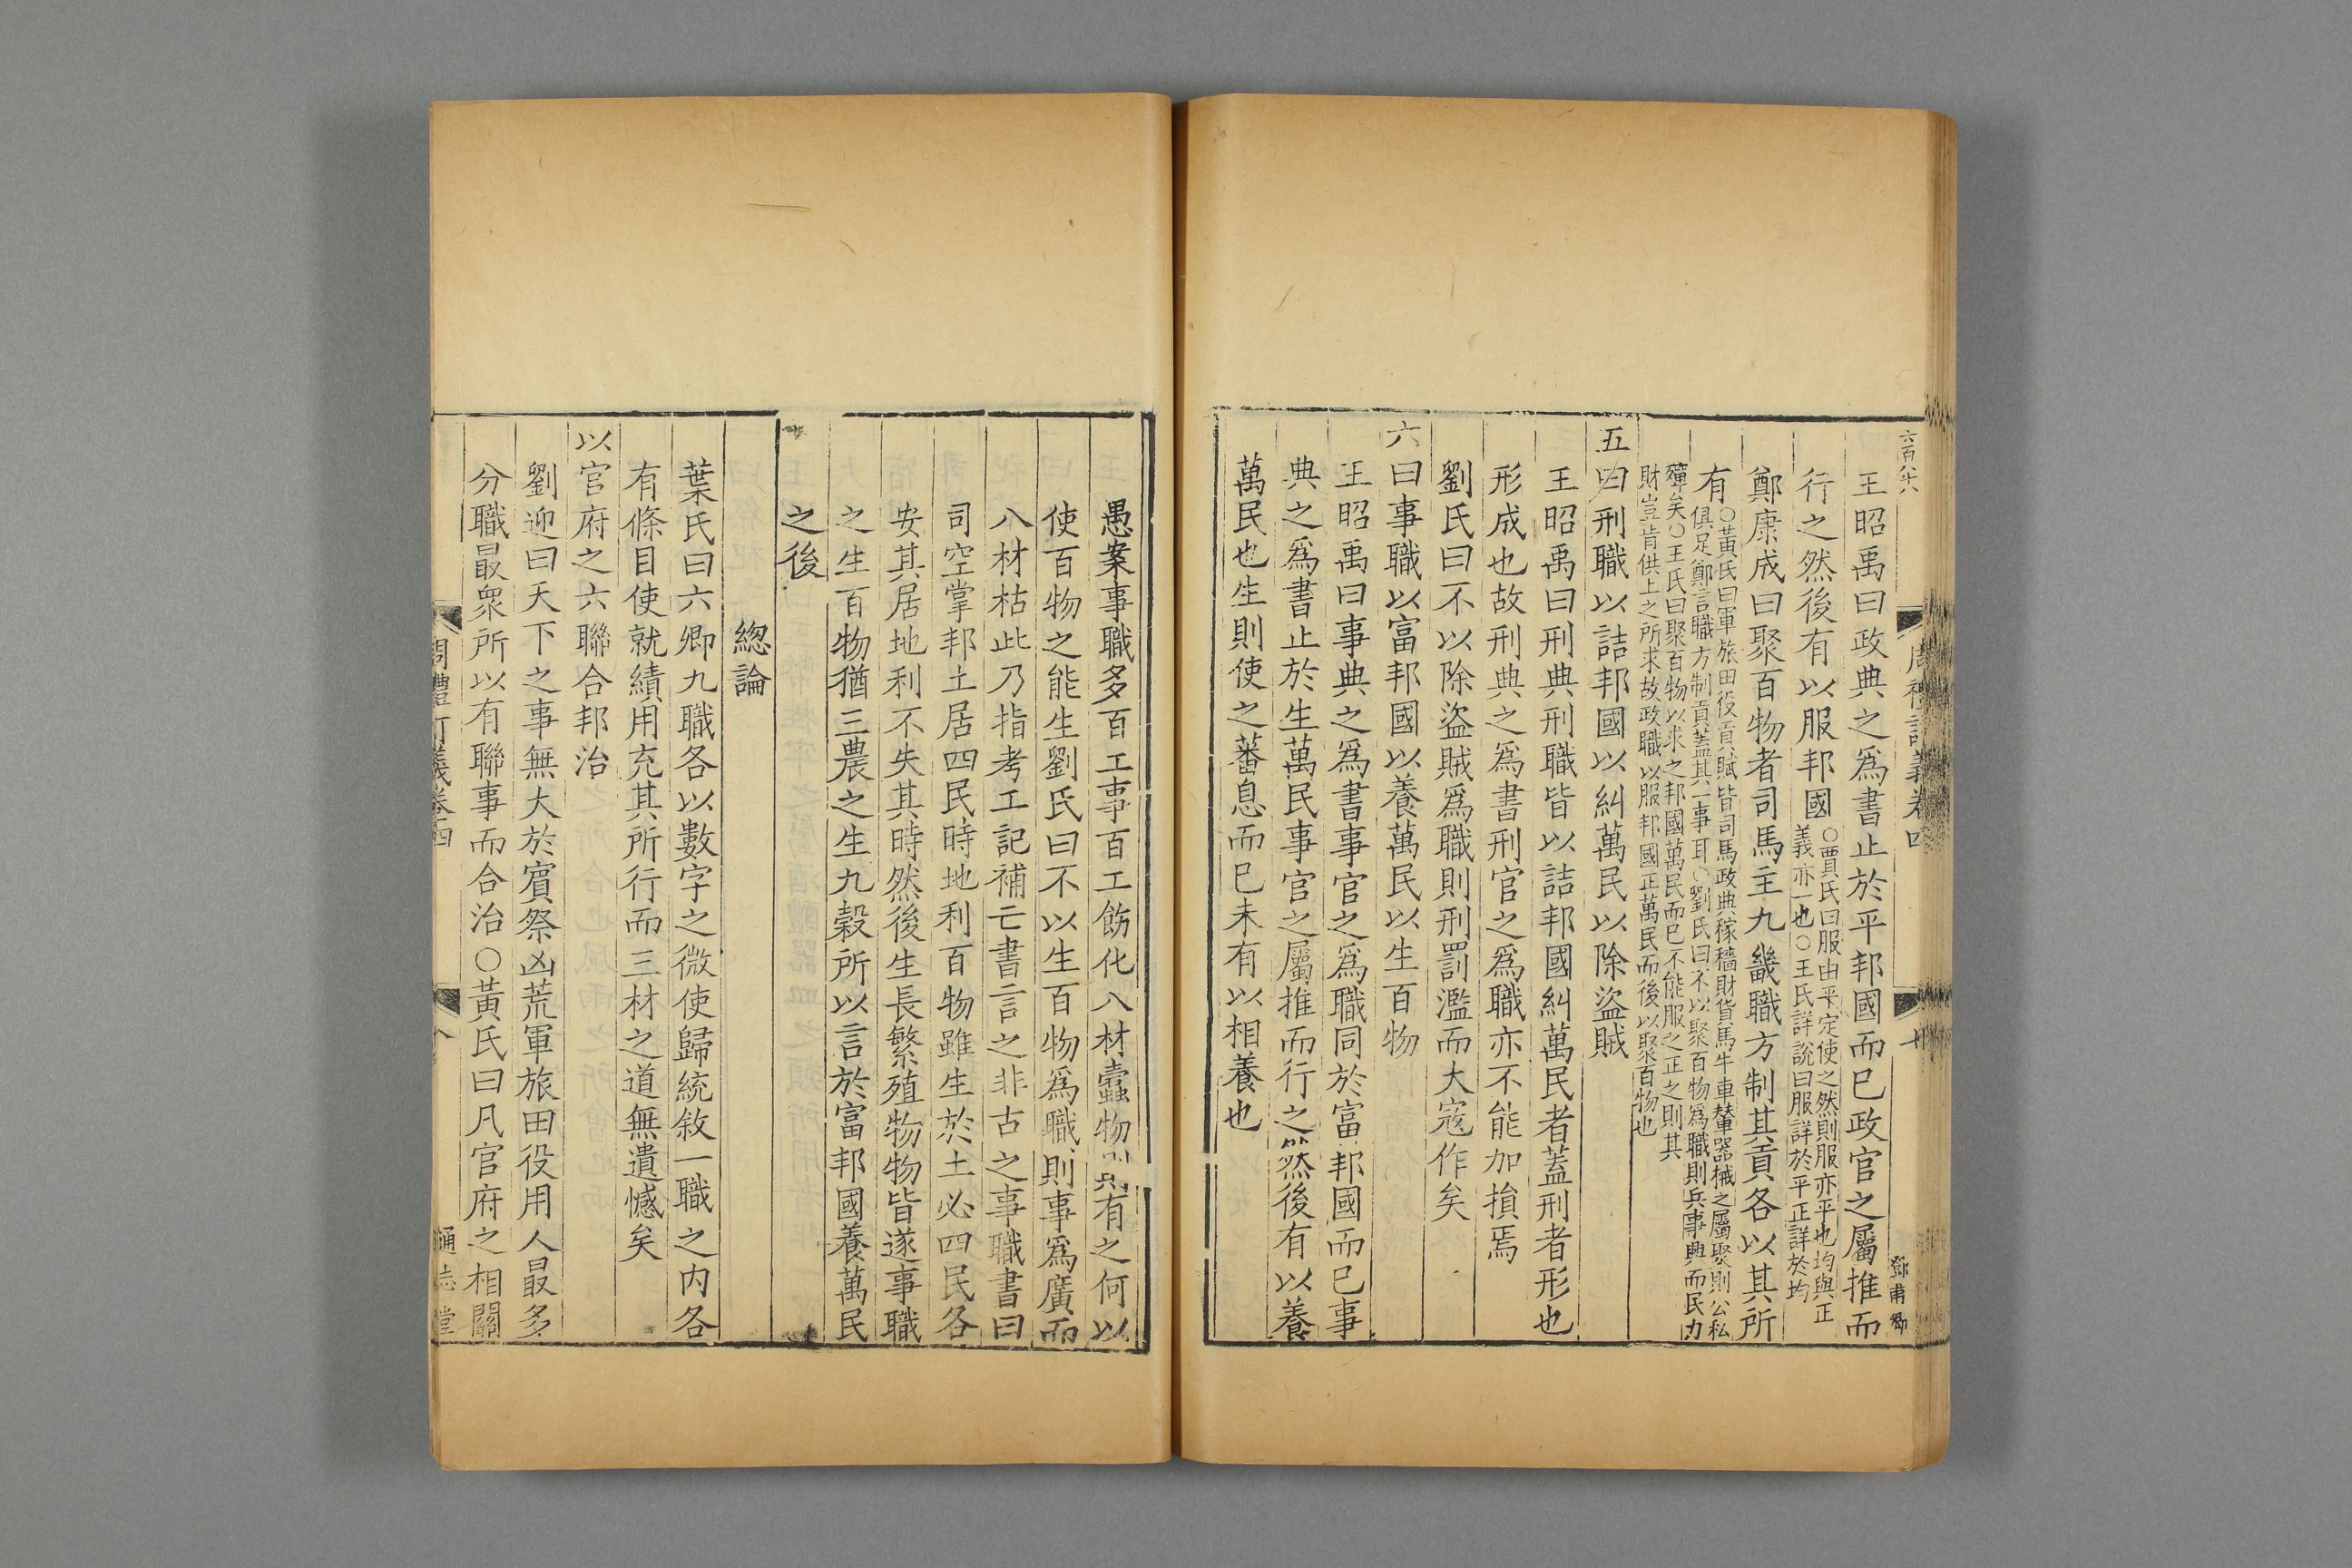 六百六十八
周禮訂義卷四
鄧甫卿
王昭禹曰政典之爲書止於平邦國而已政官之屬推而
行之然後有以服邦國○賈氏曰服由平定使之然則服亦平也均與正
義亦一也○王氏詳說曰服詳於平正詳於均
鄭康成曰聚百物者司馬主九畿職方制其貢各以其所
有○黃氏曰軍旅田役貢賦皆司馬政典稼穡財貨馬牛車輦器械之屬聚則公私
俱足鄭言職方制貢蓋其一事耳○劉氏曰不以聚百物爲職則兵事興而民力
殫矣○王氏曰聚百物以求之邦國萬民而已不能服之正之則其
財豈肯供上之所求故政職以服邦國正萬民而後以聚百物也
五曰刑職以詰邦國以糾萬民以除盜賊
王昭禹曰刑典刑職皆以詰邦國糾萬民者蓋刑者形也
形成也故刑典之爲書刑官之爲職亦不能加損焉
劉氏曰不以除盜賊爲職則刑罰濫而大寇作矣
六曰事職以富邦國以養萬民以生百物
王昭禹曰事典之爲書事官之爲職同於富邦國而已事
典之爲書止於生萬民事官之屬推而行之然後有以養
萬民也生則使之蕃息而已未有以相養也
愚案事職多百工事百工飭化八材蠹物則有之何以
使百物之能生劉氏曰不以生百物爲職則事爲廣而
八材枯此乃指考工記補亡書言之非古之事職書曰
司空掌邦土居四民時地利百物雖生於土必四民各
安其居地利不失其時然後生長繁殖物物皆遂事職
之生百物猶三農之生九穀所以言於富邦國養萬民
之後
緫論
葉氏曰六卿九職各以數字之微使歸統敘一職之内各
有條目使就績用充其所行而三材之道無遺憾矣
以官府之六聯合邦治
劉迎曰天下之事無大於賓祭凶荒軍旅田役用人最多
分職最衆所以有聯事而合治○黃氏曰凡官府之相關
周禮訂義卷四
八
通志堂